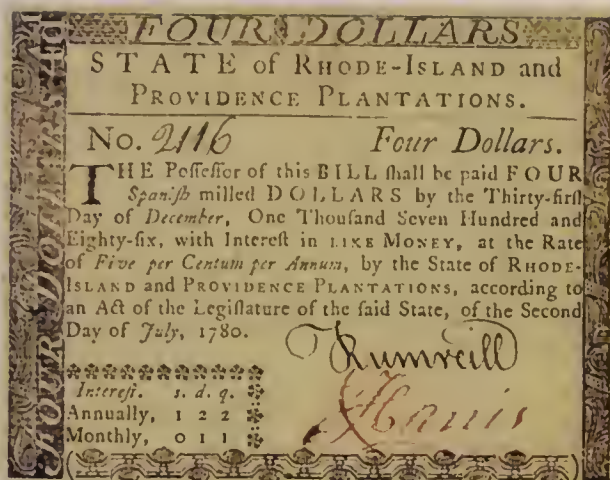 FOUR DOLLARS
STATE of RHODE-ISLAND and
PROVIDENCE PLANTATIONS.
No. 2116 Four Dollars.
THE Poſſeſſor of this BILL ſhall be paid FOUR
Spaniſh milled DOLLARS by the Thirty-firſt
Day of December, One Thouſand Seven Hundred and
Eighty-ſix, with Intereſt in LIKE MONEY, at the Rate
of Five per Centum per Annum, by the State of RHODE-
ISLAND and PROVIDENCE PLANTATIONS, according to
an Act of the Legiſlature of the ſaid State, of the Second
Day of July, 1780.
Rumreill
Intereſt. s. d. q.
Annually, 1 2 2
Monthly, 0 1 1
Harris
FOUR DOLLARS